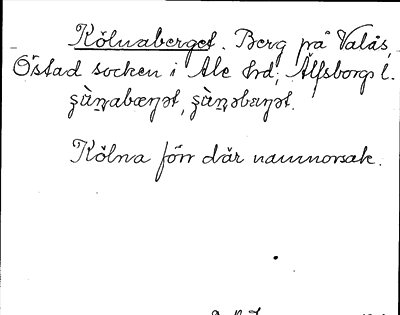 Kölnaberget. Berg på Valås,
Östad socken i Ale hrd, Älfsborgs l.
Kölna förr där namnorsak.